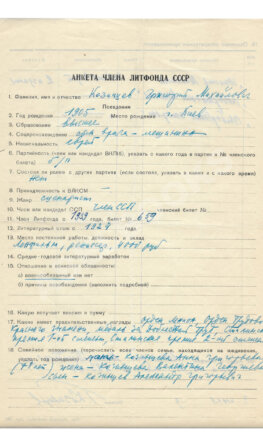 АНКЕТА ЧЛЕНА ЛИТФОНДА СССР
1. Фамилия, имя и отчество Козинцев Григорий Михайлович
Псевдоним
2. Год рождения 1905 Место рождения г. Киев
3. Образование высшее
4. Соцпроисхождение сын врача - мещанина
5. Национальность еврей
6. Партийность (член или кандидат ВКП(б), указать с какого года в партии и № членского
билета) б/п
7. Состоял ли ранее в других партиях (если состоял, указать в каких и с какого времени)
нет
8. Принадлежность к ВЛКСМ —
9. Жанр сценарист
10. Член или кандидат ССП член ССП членский билет №
11. Член Литфонда с 1939 билет № 659
12. Литературный стаж с 1924 года
13. Место постоянной работы должность и оклад
Ленфильм, режиссер, 4000 руб
14. Средне-годовой литературный заработок
15. Отношение к воинской обязанности:
а) военнообязанный или нет
б) причина освобождения (заполнить подробный)
16. Какую получает пенсию
17. Какие имеет правительственные награды орден Ленина, Орден Трудового
Красного Знамени, медаль за Доблестный труд, Сталинская
премия 1-ой степени, Сталинская премия 2-ой степени
18. Семейное положение (перечислить всех членов семьи, находящихся на иждивении,
указать год рождения) мать - Козинцева Анна Григорьевна
жена - Козинцева Валентина Георгиевна
сын - Козинцев Александр Григорьевич